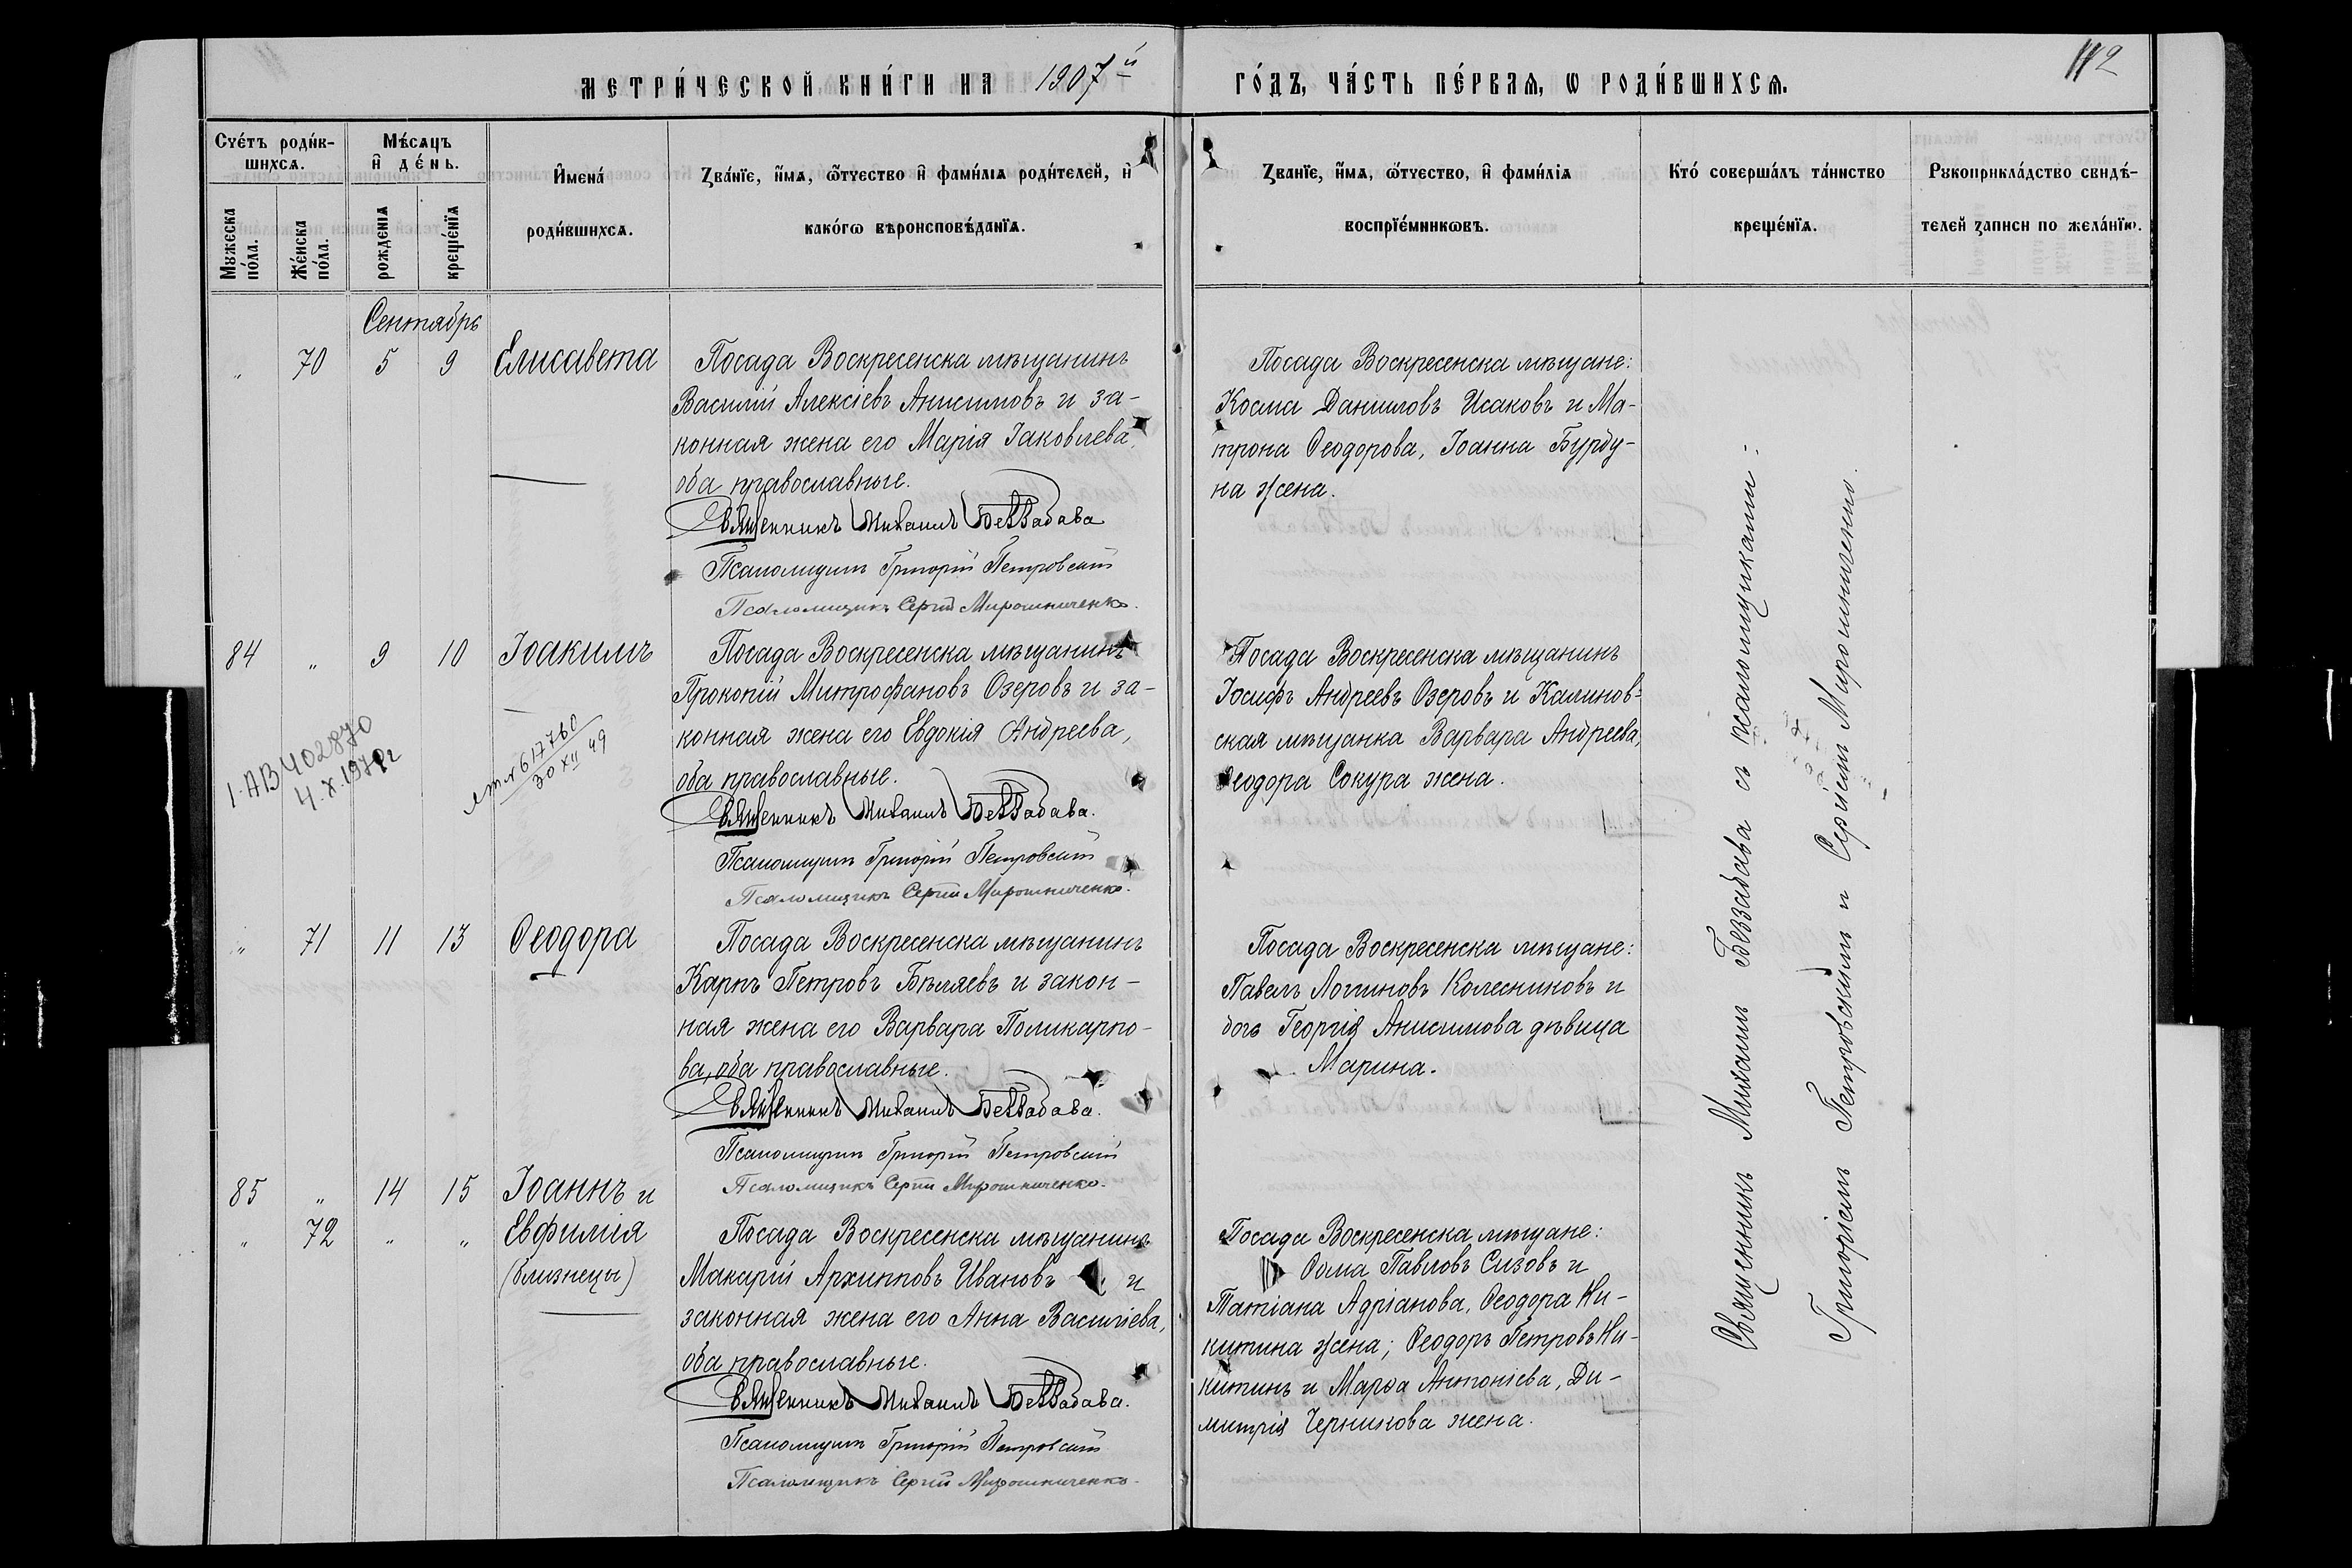 МЕТРИ́ЧЕСКОЙ КНИ́ГИ НА 1907й
ГО́ДЪ, ЧА́СТЬ ПЕ́РВАѦ, Ѡ РОДИ́ВШИХСѦ.
112
Счетъ роди́в-
шихсѧ.
Мужеска
по́ла.
Же́нска
по́ла.
Мѣ́сѧцъ
и҆ де́нь.
рожденїѧ
креще́нїѧ
И҆мена́
роди́вшихсѧ.
Зва́нїе, и҆́мѧ, ѻ҆́тчество и҆ фами́лїѧ роди́телей, и҆
како́гѡ вѣроисповѣ́данїѧ.
Зва́нїе, и҆́мѧ, ѻ҆́тчество, и҆ фами́лїѧ
воспрїе́мникѡвъ.
Кто́ соверша́лъ та́инство
креще́нїѧ.
Рукоприкла́дство свидѣ́-
телей записи по жела́нїю.
Сентябрь
" 70 5 9 Елисавета
Посада Воскресенска мѣщанинъ
Василій Алексіевъ Анисимовъ и за-
конная жена его Марія Іаковлева,
оба православные.
Священникъ Михаилъ Беззабава
Псаломщикъ Григорій Петровскій
Псаломщикъ Сергій Мирошниченко.
Посада Воскресенска мѣщане:
Косма Даниловъ Исаковъ и Ма-
трона Ѳеодорова, Іоанна Бурду-
на жена.
84 " 9 10 Іоакимъ
1.АВ402870
4.X.197
617760
30 XII 49
Посада Воскресенска мѣщанинъ
Прокопій Митрофановъ Озеровъ и за-
конная жена его Евдокія Андреева,
оба православные.
Священникъ Михаилъ Беззабава.
Псаломщикъ Григорій Петровскій
Псаломщикъ Сергій Мирошниченко.
Посада Воскресенска мѣщанинъ
Іосифъ Андреевъ Озеровъ и Калинов-
ская мѣщанка Варвара Андреева,
Ѳеодора Сокура жена.
" 71 11 13 Ѳеодора
Посада Воскресенска мѣщанинъ
Карпъ Петровъ Бѣляевъ и закон-
ная жена его Варвара Поликарпо-
ва, оба православные.
Священникъ Михаилъ Беззабава.
Псаломщикъ Григорій Петровскій
Псаломщикъ Сергій Мирошниченко.
Посада Воскресенска мѣщане:
Павелъ Логиновъ Колесниковъ и
дочь Георгія Анисимова дѣвица
Марина.
85 " 14 15 Іоаннъ и
" 72 " " Евфимія
(близнецы)
Посада Воскресенска мѣщанинъ
Макарій Архипповъ Ивановъ и
законная жена его Анна Василіева,
оба православные.
Священникъ Михаилъ Беззабава.
Псаломщикъ Григорій Петровскій
Псаломщикъ Сергій Мирошниченко.
Посада Воскресенска мѣщане:
Ѳома Павловъ Сизовъ и
Татіана Адріанова, Ѳеодора Ни-
китина жена; Ѳеодоръ Петровъ Ни-
китинъ и Марѳа Антоніева, Ди-
митрія Черникова жена.
Священникъ Михаилъ Беззабава съ псаломщиками:
Григоріемъ Петровскимъ и Сергіемъ Мирошниченко.